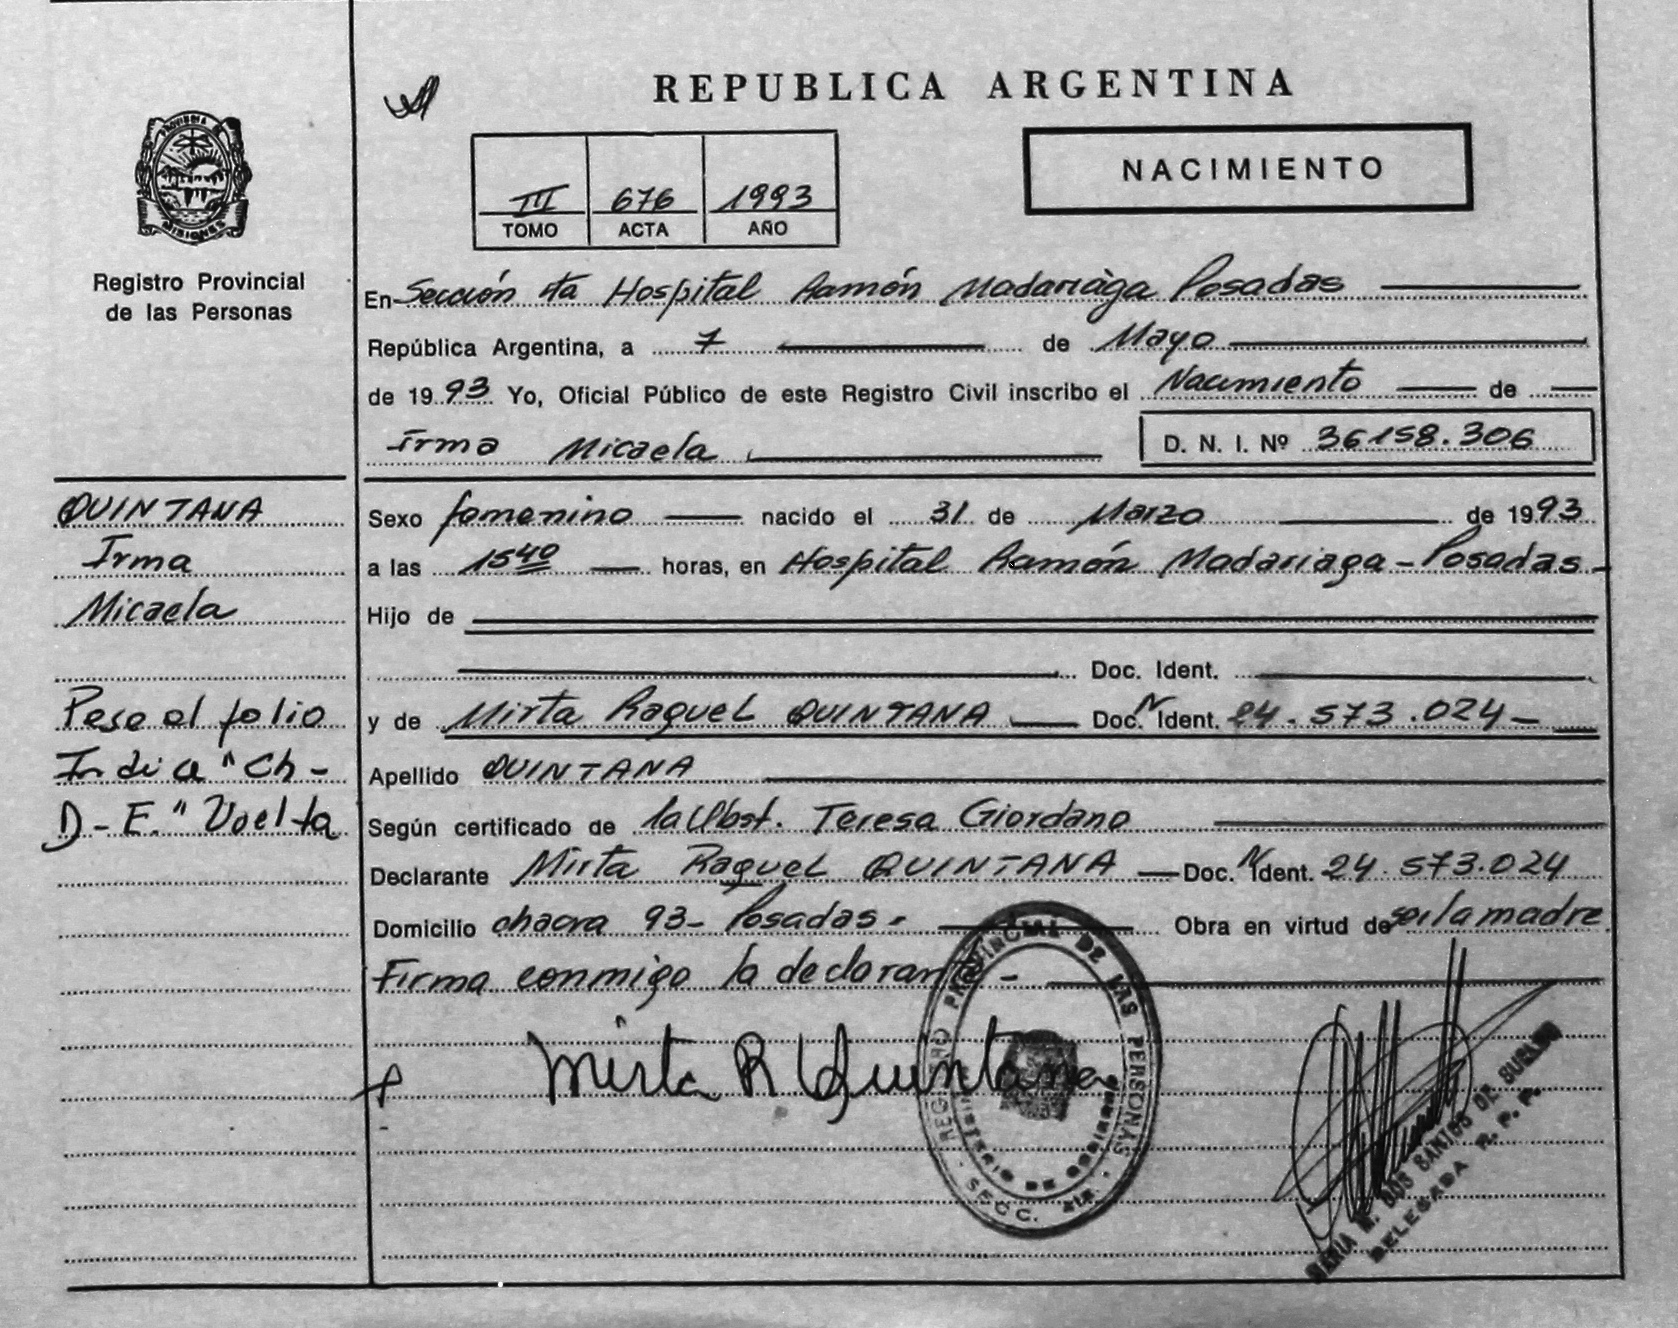 REPUBLICA ARGENTINA
NACIMIENTO
III 676 1993
TOMO ACTA AÑO
PROVINCIA DE
MISIONES
Registro Provincial
de las Personas
En Sección 4ta Hospital Ramón Madariaga Posadas
República Argentina, a 7 de Mayo
de 1993 Yo, Oficial Público de este Registro Civil inscribo el Nacimiento de
Irma Micaela D. N. I. Nº 36158.306
QUINTANA
Irma
Micaela
Pese al folio
Indice "Ch-
D-E." Vuelta
Sexo femenino nacido el 31 de Marzo de 1993
a las 15 40 horas, en Hospital Ramón Madariaga - Posadas -
Hijo de
Doc. Ident.
y de Mirta Raquel QUINTANA Doc. N Ident. 24.573.024-
Apellido QUINTANA
Según certificado de la Obst. Teresa Giordano
Declarante Mirta Raquel QUINTANA - Doc. N Ident. 24.573.024
Domicilio chacra 93- Posadas - Obra en virtud de ser la madre
Firma conmigo la declarante -
Mirta R Quintana
REGISTRO PROVINCIAL DE LAS PERSONAS
MINISTERIO DE GOBIERNO
SECC. 4ta
DOS SANTOS DE
DELEGADA R. P. P.